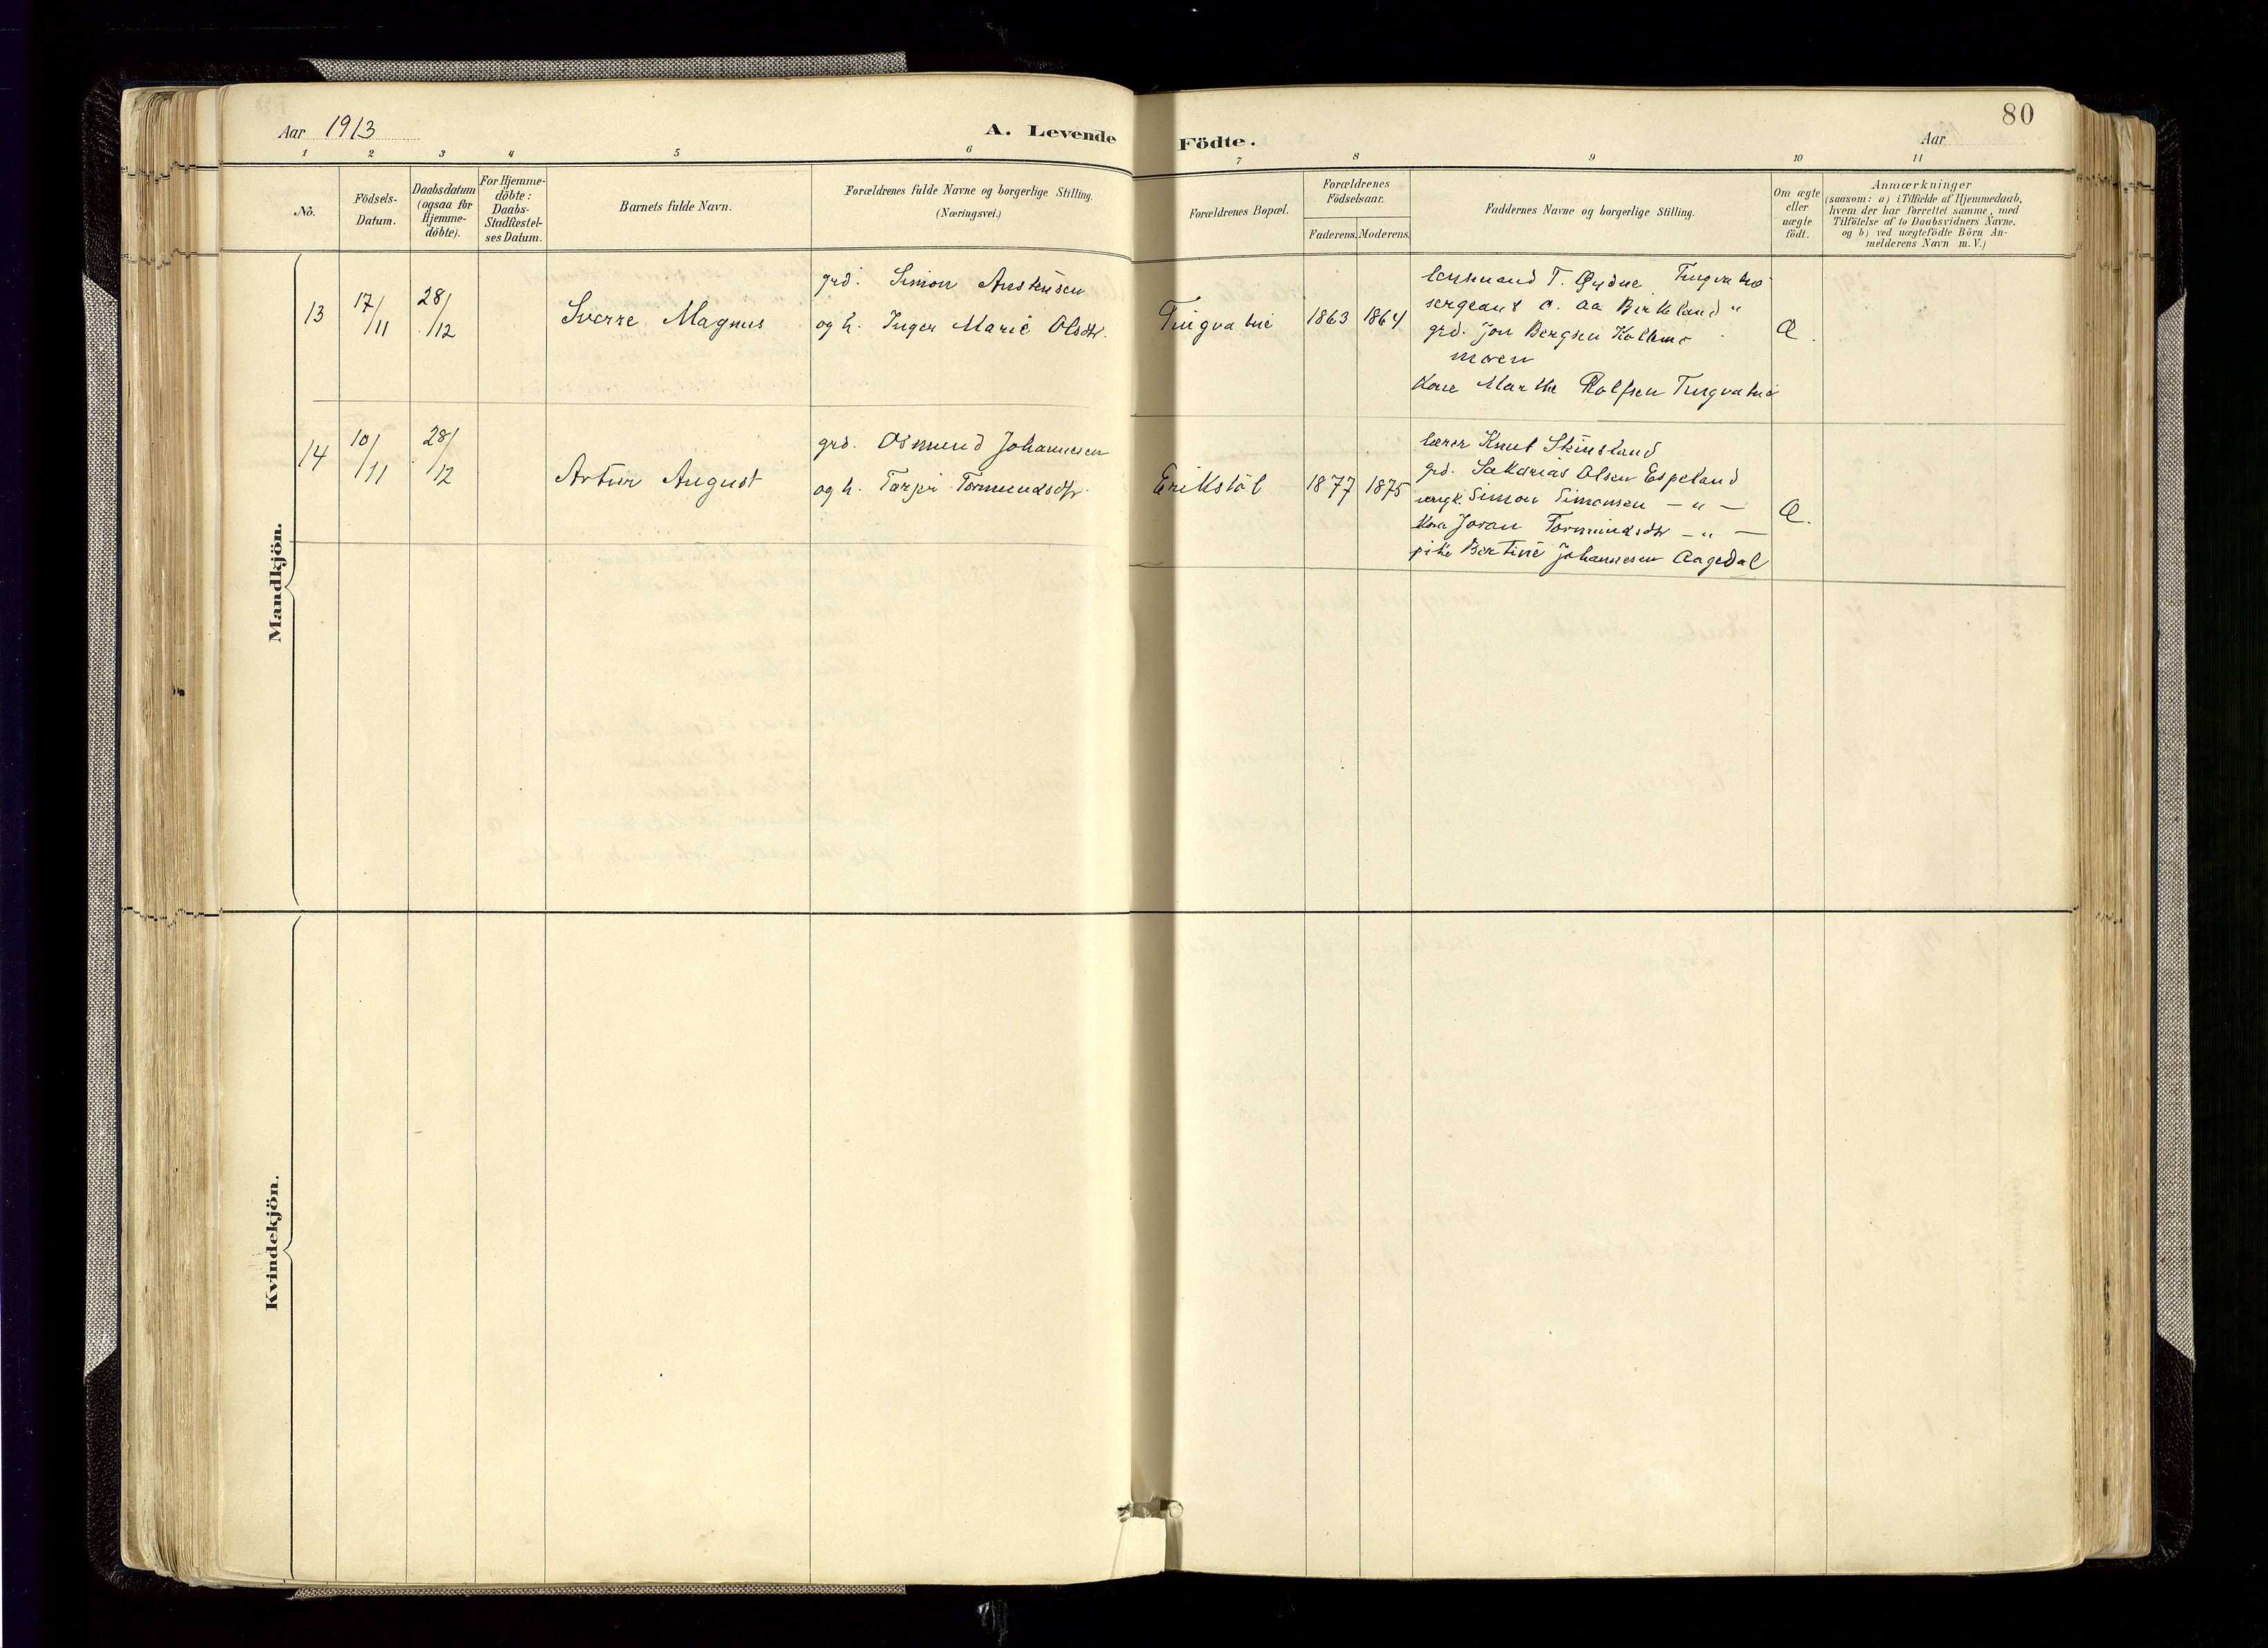 80
Aar 1913
A. Levende Födte.
Aar
1 2 3 4 5 6 7 8 9 10 11
No.
Födsels-
Datum.
Daabsdatum
(ogsaa for
Hjemme-
döbte).
For Hjemme-
döbte:
Daabs-
Stadfæstel-
ses Datum.
Barnets fulde Navn.
Forældrenes fulde Navne og borgerlige Stilling.
(Næringsvei.)
Forældrenes Bopæl.
Forældrenes
Födselsaar.
Faderens. Moderens.
Faddernes Navne og borgerlige Stilling.
Om ægte
eller
uægte
födt.
Anmærkninger
(saasom: a) i Tilfælde af Hjemmedaab,
hvem der har forrettet samme, med
Tilföielse af to Daabsvidners Navne.
og b) ved uægtefödte Börn An-
melderens Navn m. V.)
Mandkjön.
13
17/11
28/12
Sverre Magnus
grd. Simon Austensen
og h. Inger Marie Olsdtr.
Tingvatne
1863 1864
lensmand T. Øydne Tingvatne
sergeant O. Aa Birkeland "
grd. Jon Bergsen
moen
Kone Marthe Rolfsen Tingvatne
Æ.
14
10/11
28/12
Artur August
grd. Osmund Johannesen
og h. Tarjer Tormundsdtr.
Erikstöl
1877 1875
lærer Knut Skeisland
grd. Sakarias Olsen Espeland
ungk. Simon Simonsen — " —
Kone Joran Tormundsdtr — " —
pike Bertine Johannesen Aagedal
Æ.
Kvindekjön.